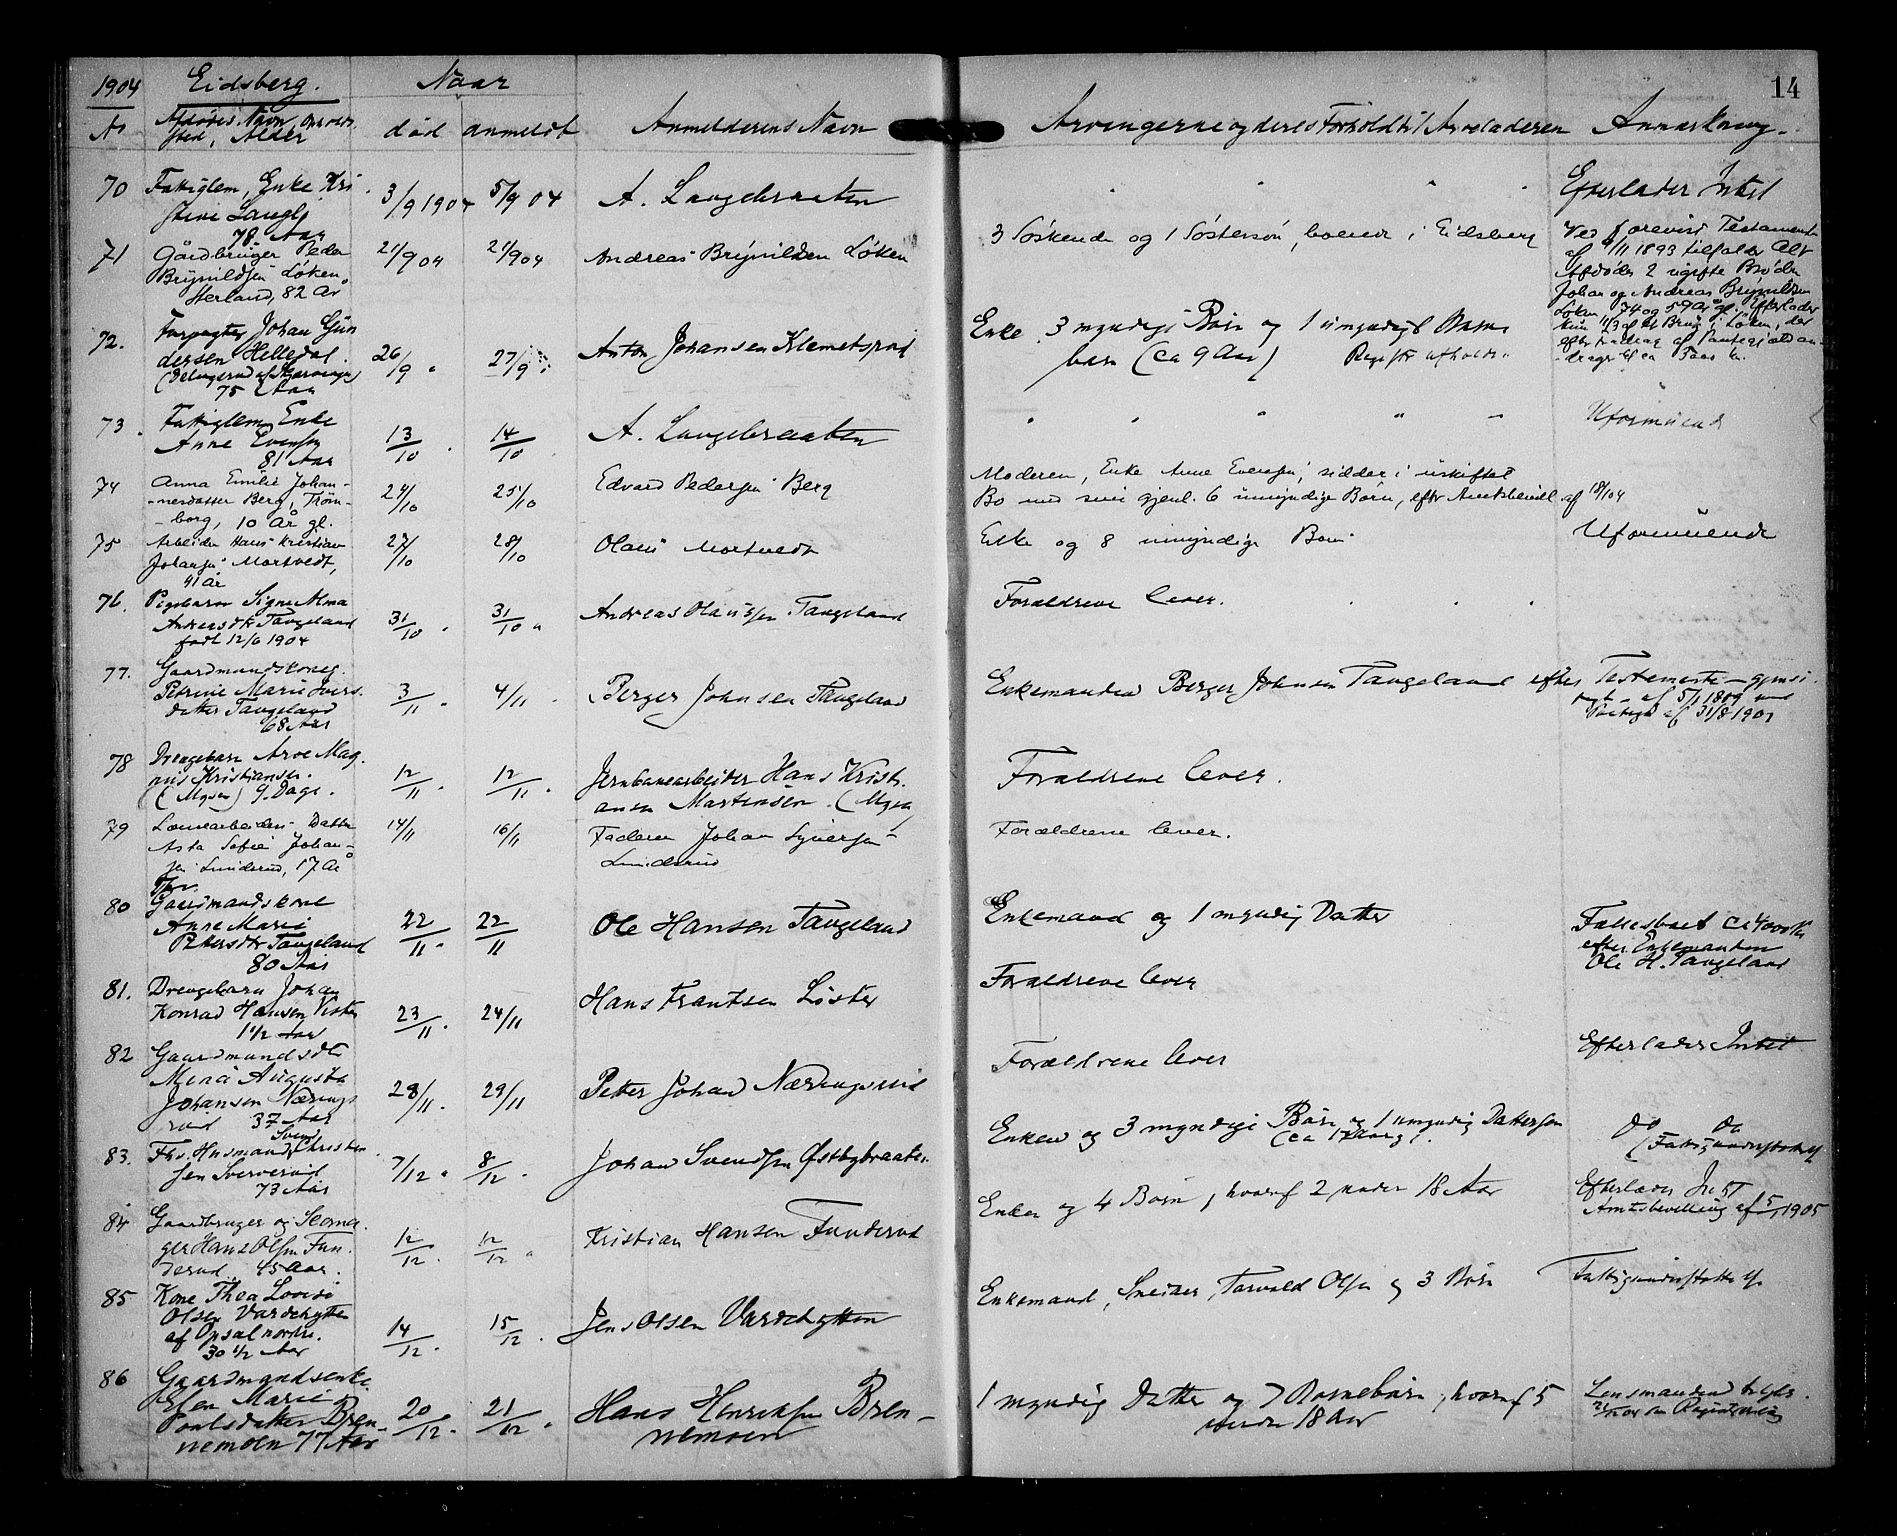 1904 Eidsberg. Naar 14
No Afdødes Navn,
sted, Alder død anmeldt Anmelderens Navn Arvingerne og deres Forhold til Arveladeren Anmærkning.
70 Fattiglem, Enke Kri
stine 78 Aar 3/9 1904 5/9 04 A. Langebraaten " " " " Efterlader Intet
71 Gårdbruger Peder
Brynildsen Løken,
82 År 21/9 04 21/9 04 Andreas Brynildsen Løken 3 Søskende og 1 Søstersøn, boende i Eidsberg Ved forevist Testament
af 1893 tilfalder Alt
Afdødes 2 ugifte Brødre
Johan og Andreas Brynildsen
Løken, 74 og 59 År gl. Efterlader
kun 1/3 af et Brug i Løken, der
efter af Pantegjæld
72. Johan Gun
dersen Helledal.
75 Aar 26/9 " 27/9 " Anton Johansen Klemetsrud Enke. 3 myndige Børn og 1 umyndigt Barne
barn (ca 9 Aar)
73. Fattiglem Enke
Anne Evensen
81 Aar 13/10 " 14/10 " A. Langebraaten " " " " Uformuende
74 Anna Emilie Johan-
-nesdatter Berg, Trøm-
-borg, 10 År gl. 24/10 25/10 Edvard Pedersen Berg Moderen, Enke Anne Evensen, sidder i uskiftet
Bo med sine gjenl. 6 umyndige Børn, efter af
75 Arbeider Hans Kristian
Johansen Mortvedt,
41 År 27/10 28/10 Olaus Mortvedt Enke og 8 umyndige Børn Uformuende
76. Pigebarn Signe Alma
Andreasdtr Tangeland
født 12/6 1904 31/10 " 31/10 " Andreas Olaussen Tangeland Forældrene lever.
77. Gaardmandskone
Petrine Marie Ivers-
datter Tangeland
68 Aar 3/11 " 4/11 " Berger Johnsen Tangeland Enkemanden Berger Johnsen Tangeland efter Testamente
af 31/8 1901
78 Drengebarn Arve Mag-
nus Kristiansen.
(Mysen) 9 Dage. 12/11 " 12/11 " Jernbanearbeider Hans Kristi-
ansen Martinsen. (Mysen) Forældrene lever.
79 Datter
Asta Sofie Johan-
sen Lunderud, 17 År 14/11 16/11 Faderen Johan Syversen
Lunderud Forældrene lever.
80 Gaardmandskone
Anne Marie
Petersdtr Tangeland
80 Aar 22/11 " 22/11 Ole Hansen Tangeland Enkemand og 1 myndig Datter Fællesboet ca 4000 Kr
efter Enkemanden
Ole H. Tangeland
81. Drengebarn Johan
Konrad Hansen
1 1/2 Aar 23/11 " 24/11 Hans Frantsen Forældrene lever
82 Gaardmandsdtr
Mina Augusta
Johansen Nærings
rud 37 Aar 28/11 " 29/11 Petter Johan Næringsrud Forældrene lever Efterlader Intet
83. Fhv. Husmand Svend Christen
sen
73 Aar 7/12 " 8/12 " Johan Svendsen Østbybraaten Enken og 3 myndige Børn og 1 umyndig Dattersøn do do
84 Gaardbruger og
Hans Olsen Fun-
derud 45 Aar. 12/12 " 12/12 " Kristian Hansen Funderud Enken og 4 Børn, hvoraf 2 under 18 Aar Efterlader
Amtsbevilling af 5/1 1905
85 Kone Thea Lovise
Olsen Vardehytten
af Opsal nordre.
30 1/2 Aar 14/12 " 15/12 " Jens Olsen Vardehytten Enkemand, Torvald Olsen og 3 Børn
86 Gaardmandsenke
Elen Marie
Poulsdatter Bren-
nemoen 77 Aar 20/12 " 21/12 " Hans Henriksen Bren-
nemoen 1 myndig Datter og 7 Børnebørn, hvoraf 5
under 18 Aar Lensmanden